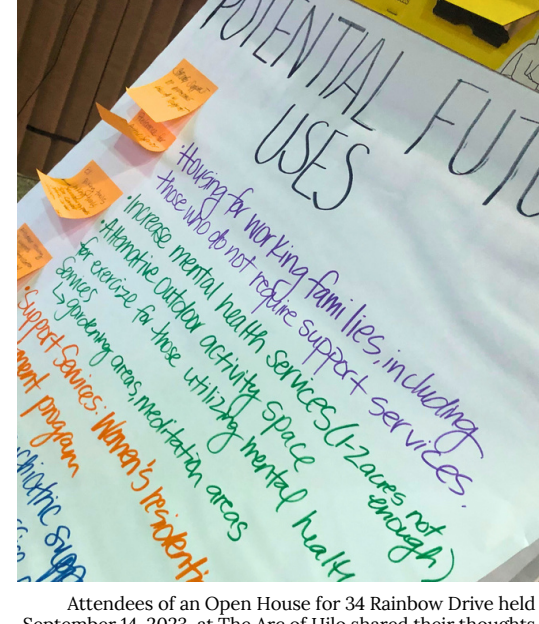 POTENTIAL FUTU
USES
• Housing for working families, including
those who do not require support services.
• Increase mental health services (1-2 acres not
enough)
• Alternative outdoor activity space
for exercize for those utilizing mental health
services
↳ gardening areas, meditation areas
Support Services: Women's residenti
ment program
chiatric supp
Attendees of an Open House for 34 Rainbow Drive held
September 14, 2023, at The Arc of Hilo shared their thoughts